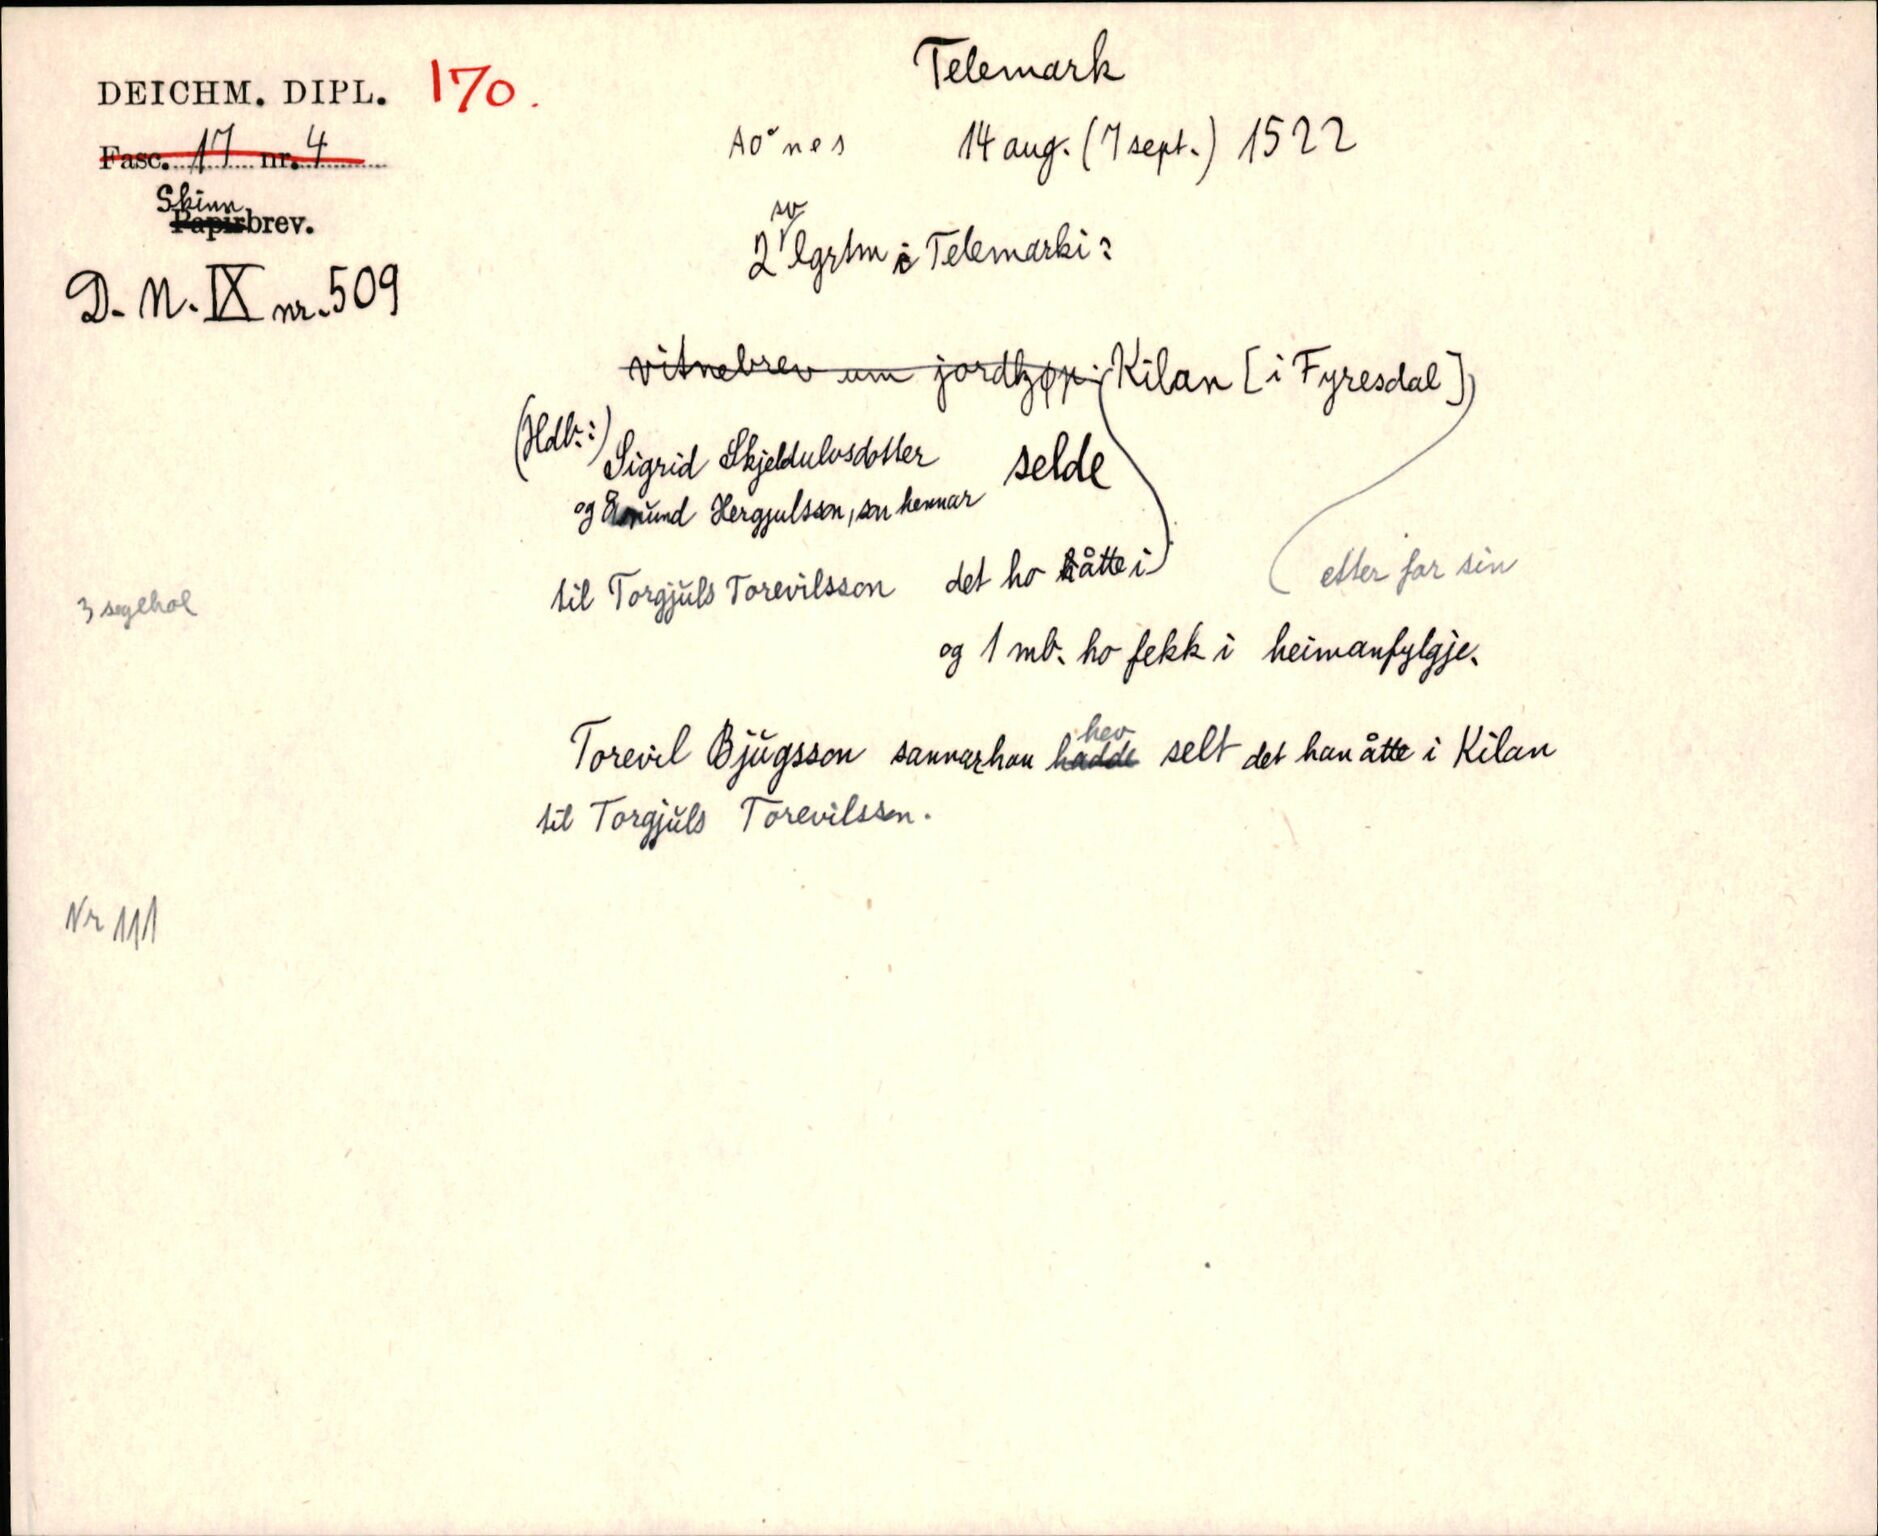 Telemark
DEICHM. DIPL. 170.
Aasnes 14 aug. (7 sept.) 1522
Fasc. 17 nr. 4
Skinn
Papirbrev.
sv
2 lgrtm i Telemarki:
D. N. IX nr. 509
vitnebrev um jordkjøp i Kilan [i Fyresdal]
(Hdb.:) Sigrid Skjeldulvsdotter selde
og Emund Hergjulsson, son hennar
til Torgjŭls Torevilsson det ho åtte i etter far sin
3 seglhol
og 1 mb. ho fekk i heimanfylgje.
hev
Torevil Bjŭgsson sannar han hadde selt det han åtte i Kilan
til Torgjŭls Torevilsson.
Nr 111